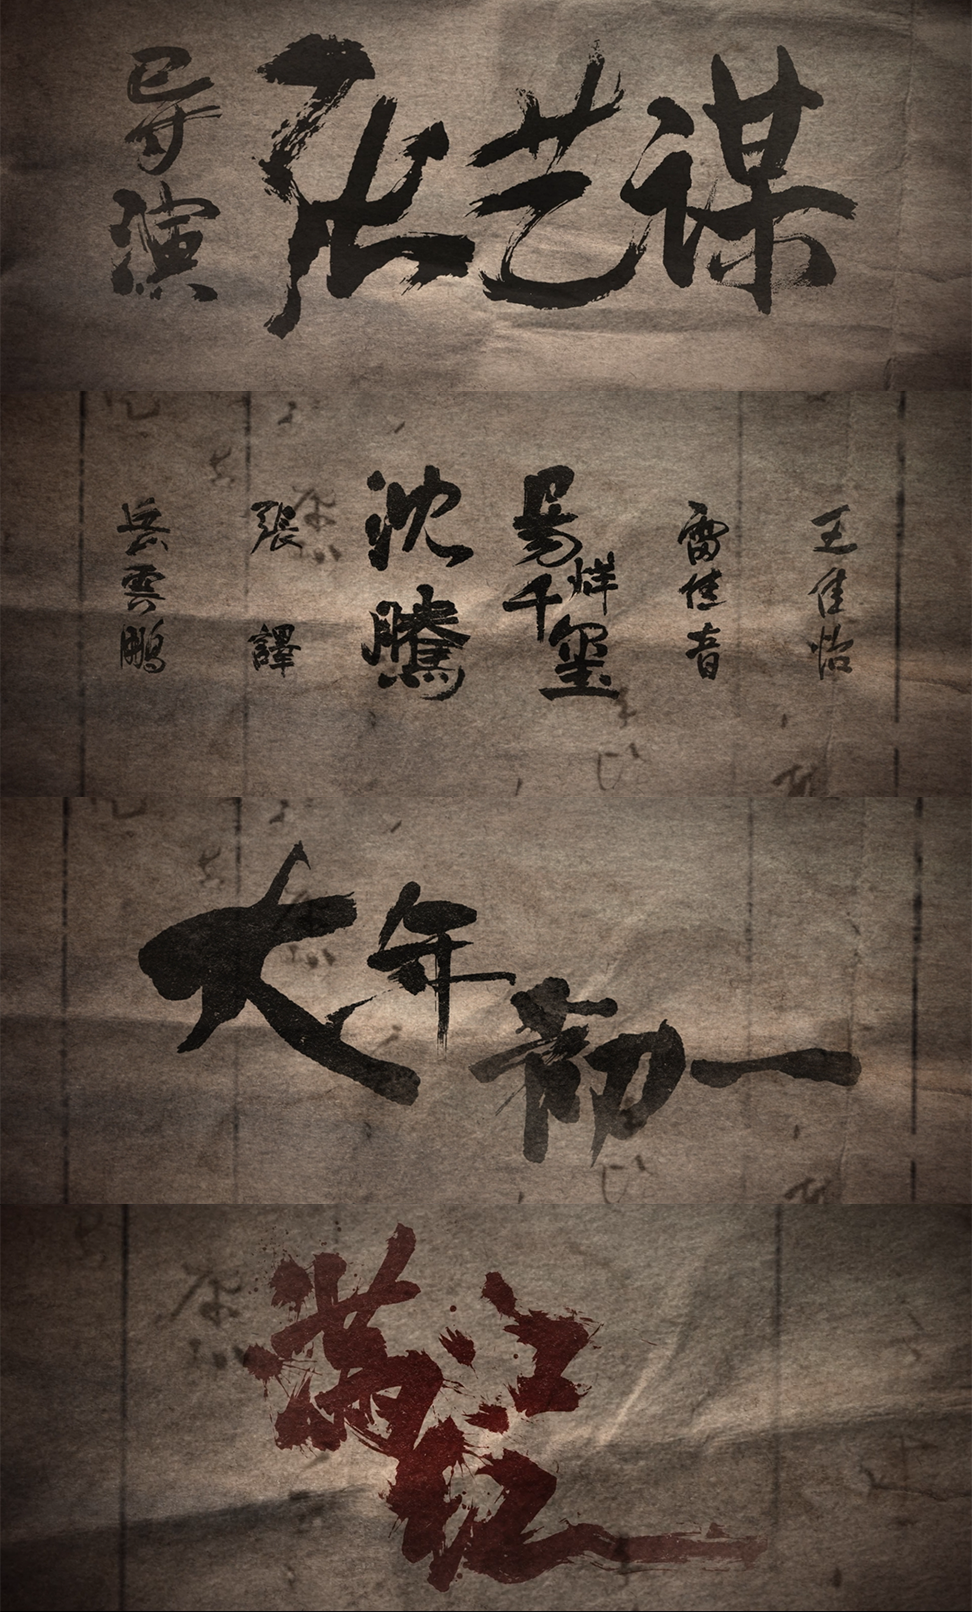 导演
张艺谋
岳雲鵬
張譯
沈騰
易烊千玺
雷佳音
王佳怡
大年初一
满江红